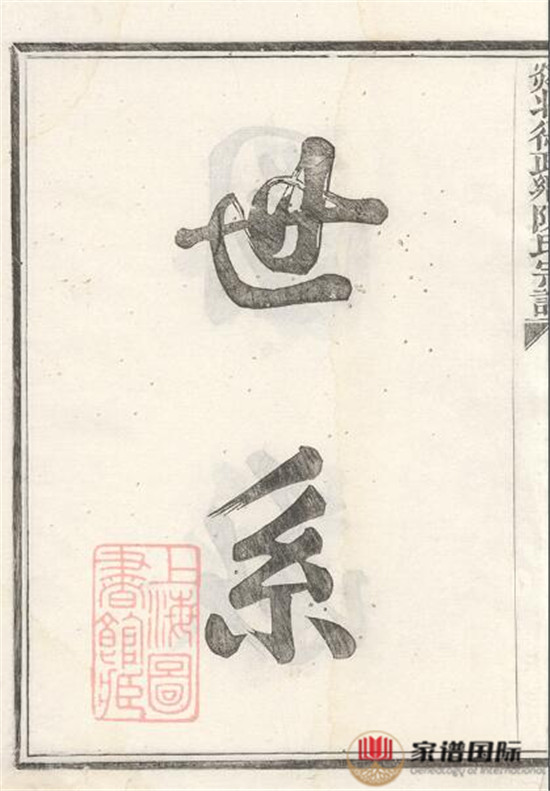 陳氏宗譜
世系
上海圖
書館藏
家谱国际
Genealogy of International